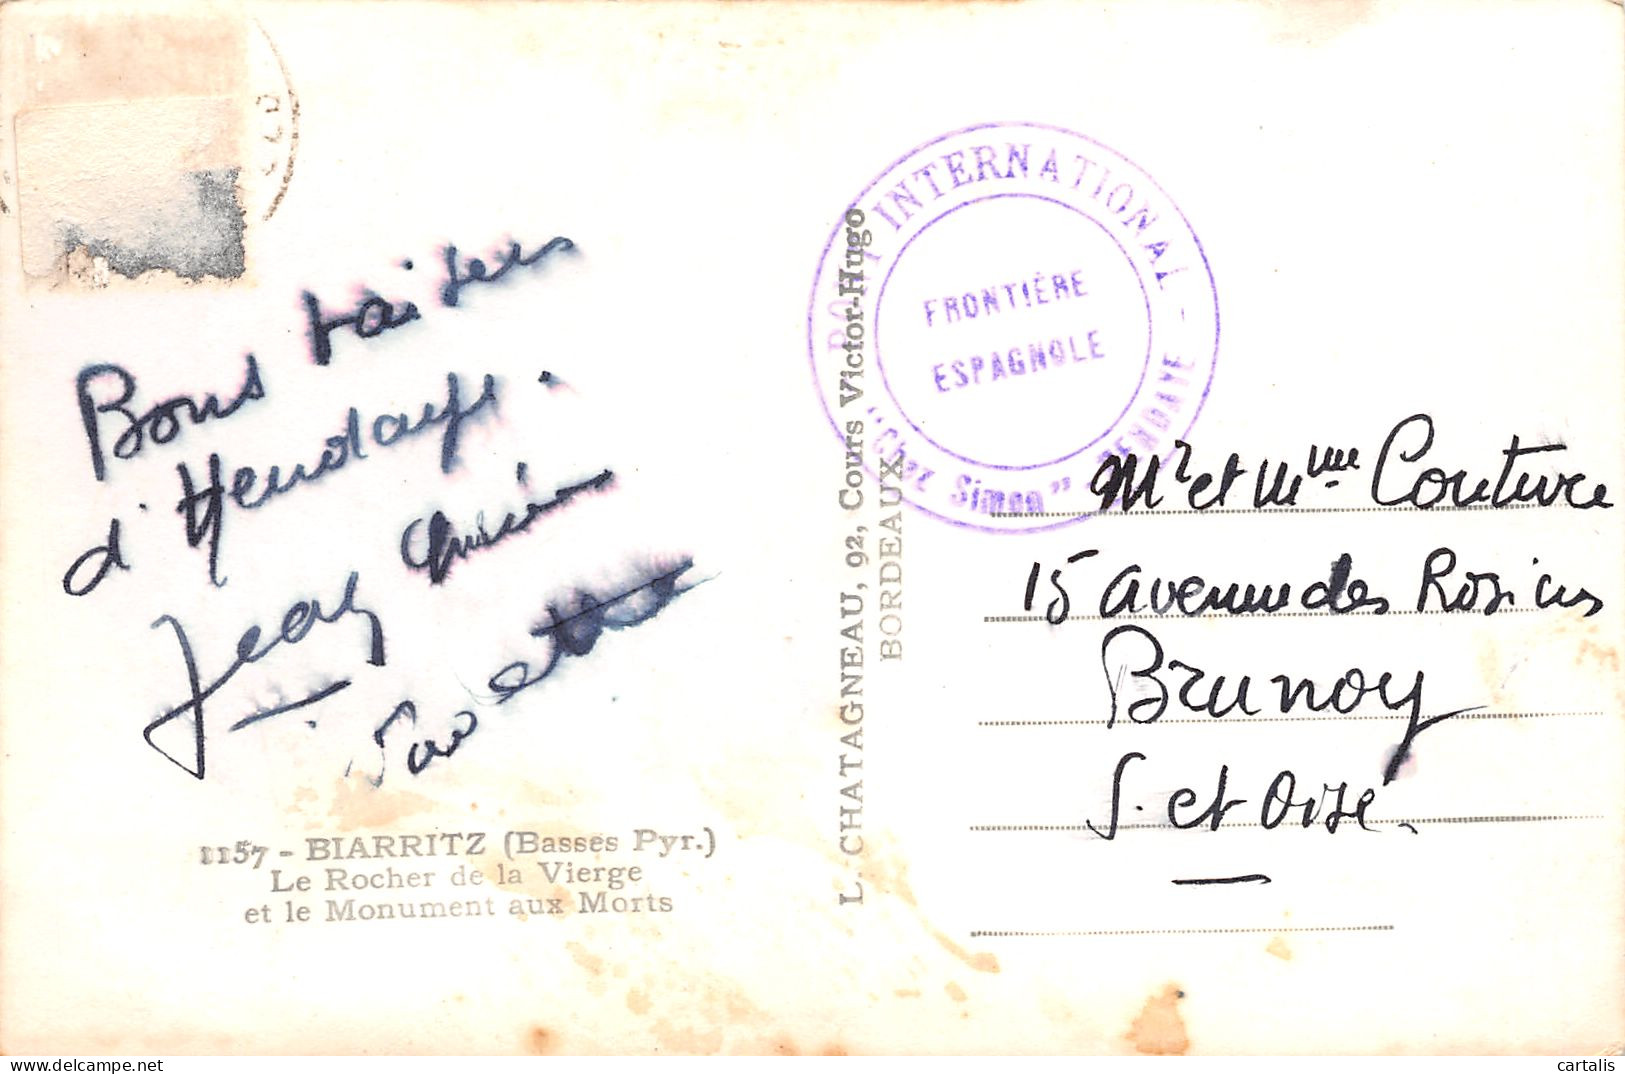 Bons baisers
d'Hendaye.
Jean
1157 - BIARRITZ (Basses Pyr.)
Le Rocher de la Vierge
et le Monument aux Morts
L. CHATAGNEAU, 92, Cours Victor-Hugo
BORDEAUX
PONT INTERNATIONAL - HENDAYE
"Chez Simon"
FRONTIÈRE
ESPAGNOLE
Mr et Mme Couture
15 avenue des Rosiers
Brunoy
S. et Oise.
cartalis